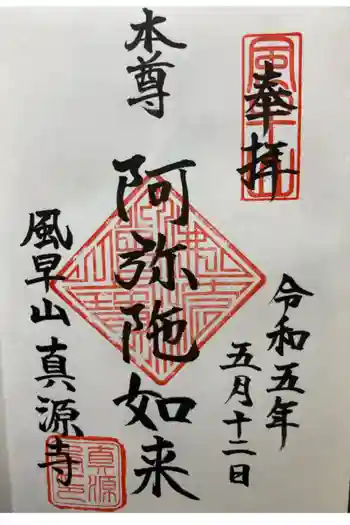 奉拝
風早山
令和五年
五月十二日
本尊
阿弥陀如来
風早山真源寺
真源